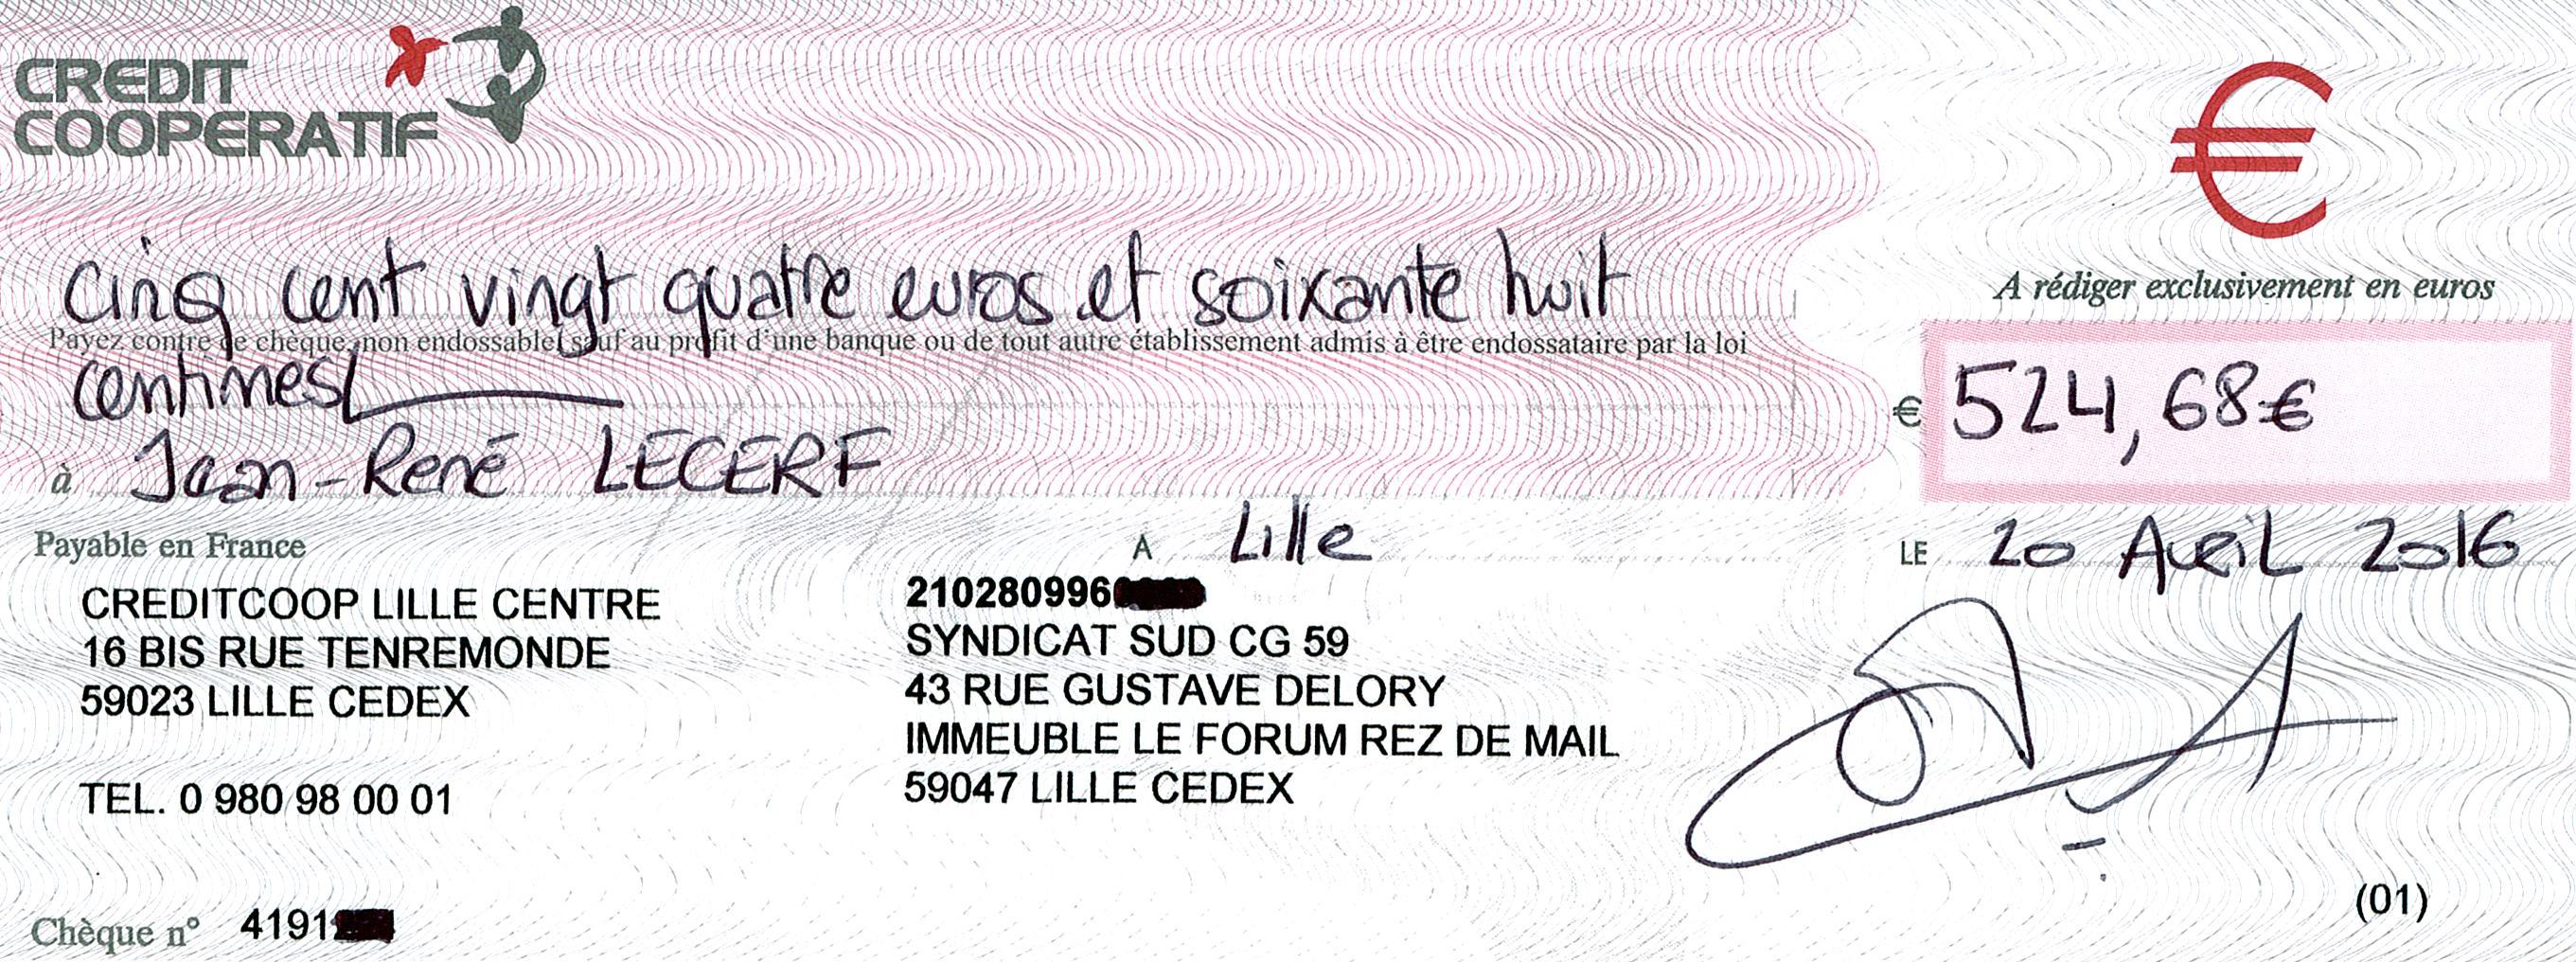 CREDIT
COOPERATIF
€
Cinq cent vingt quatre euros et soixante huit
A rédiger exclusivement en euros
Payez contre ce chèque, non endossable, sauf au profit d'une banque ou de tout autre établissement admis à être endossataire par la loi
centimes
€ 524,68€
à Jean-René LECERF
Payable en France
A Lille
LE 20 Avril 2016
CREDITCOOP LILLE CENTRE
16 BIS RUE TENREMONDE
59023 LILLE CEDEX
TEL. 0 980 98 00 01
210280996
SYNDICAT SUD CG 59
43 RUE GUSTAVE DELORY
IMMEUBLE LE FORUM REZ DE MAIL
59047 LILLE CEDEX
(01)
Chèque n° 4191